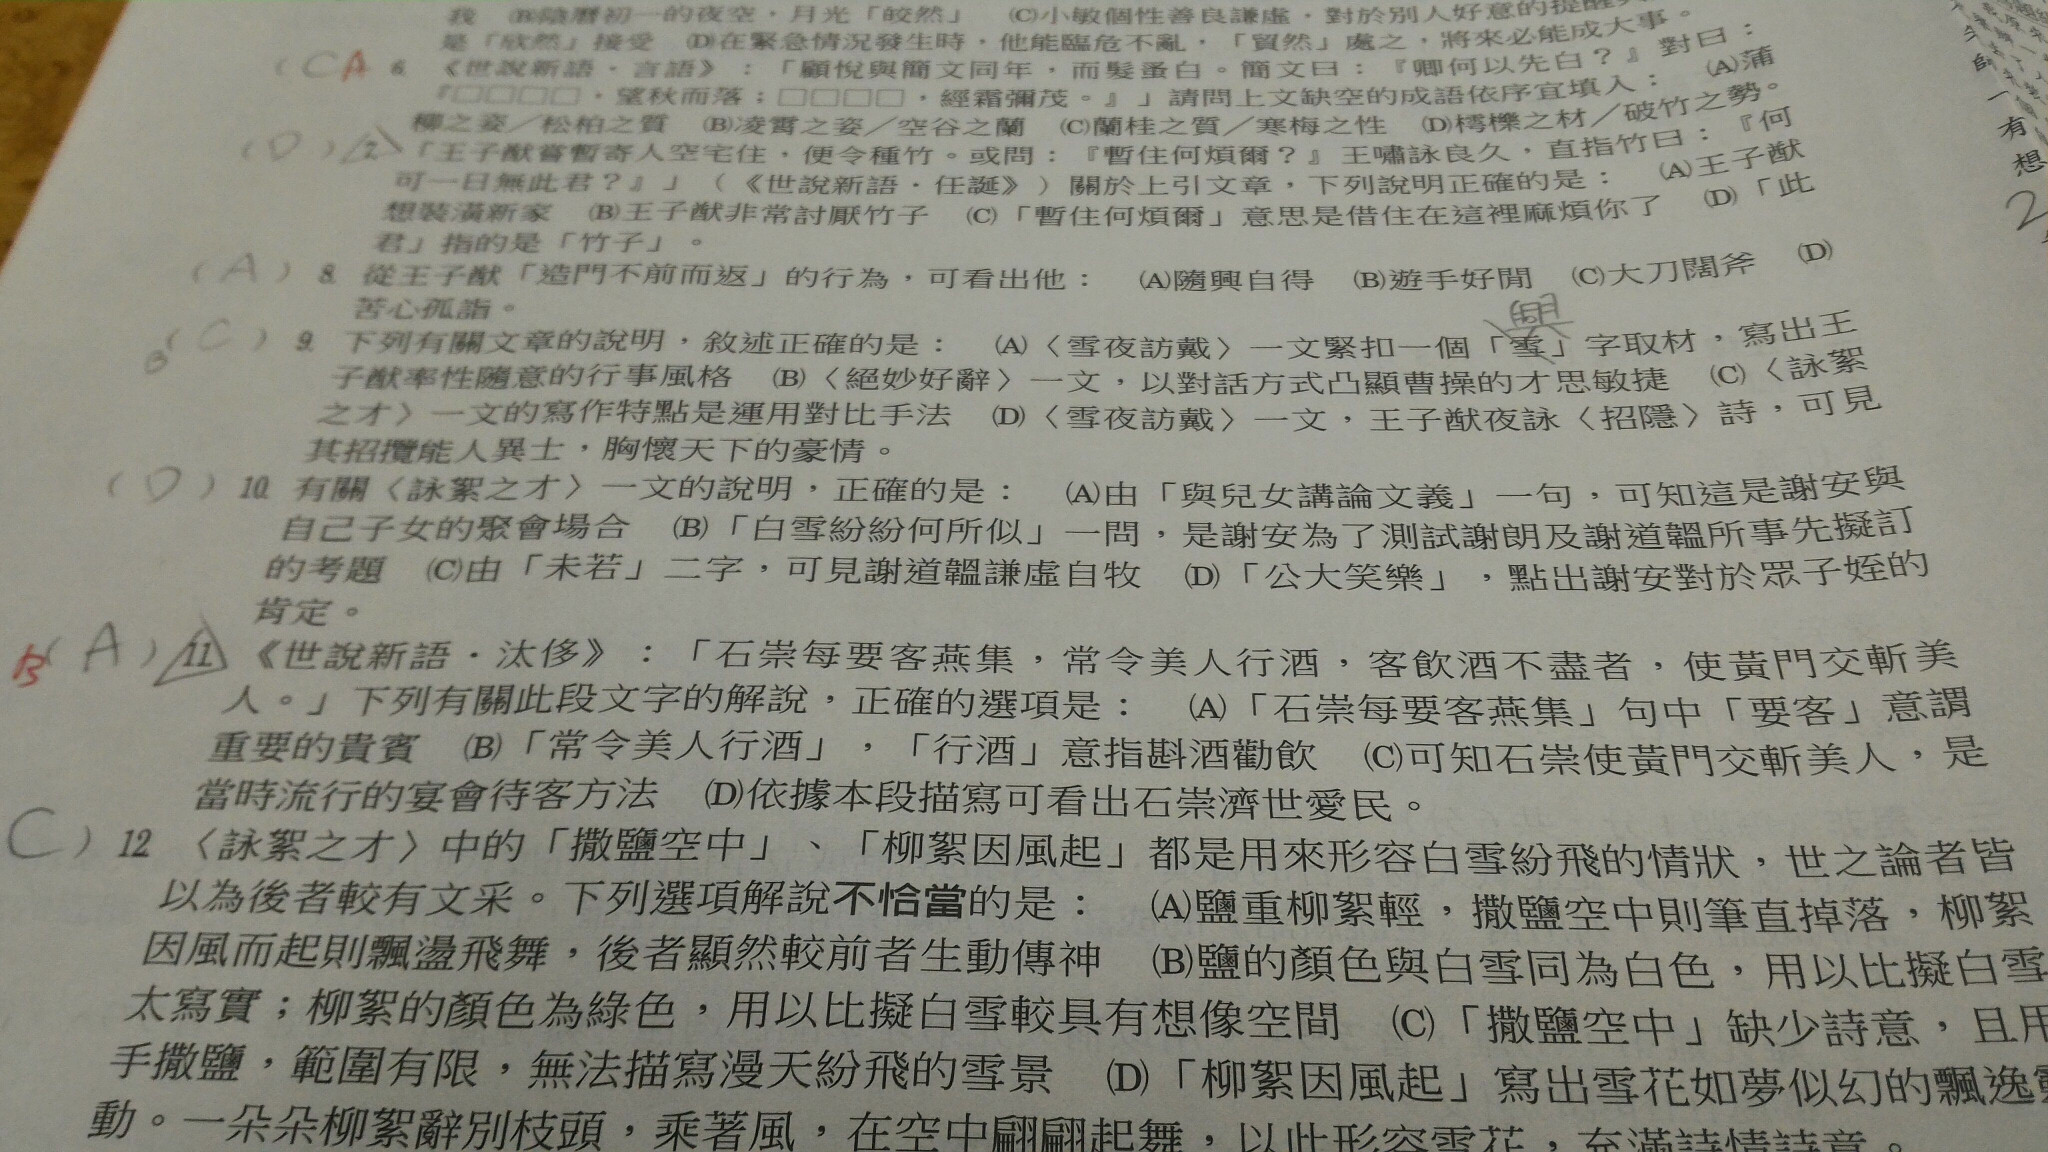 我 (B)陰曆初一的夜空，月光「皎然」 (C)小敏個性善良謙虛，對於別人好意的提醒
是「欣然」接受 (D)在緊急情況發生時，他能臨危不亂，「貿然」處之，將來必能成大事。
(CA 6. 《世說新語．言語》：「顧悅與簡文同年，而髮蚤白。簡文曰：『卿何以先白？』對曰：
『□□□□，望秋而落；□□□□，經霜彌茂。』」請問上文缺空的成語依序宜填入： (A)蒲
柳之姿／松柏之質 (B)凌霄之姿／空谷之蘭 (C)蘭桂之質／寒梅之性 (D)樗櫟之材／破竹之勢。
(D) 7. 「王子猷嘗暫寄人空宅住，便令種竹。或問：『暫住何煩爾？』王嘯詠良久，直指竹曰：『何
可一日無此君？』」（《世說新語．任誕》）關於上引文章，下列說明正確的是： (A)王子猷
想裝潢新家 (B)王子猷非常討厭竹子 (C)「暫住何煩爾」意思是借住在這裡麻煩你了 (D)「此
君」指的是「竹子」。
(A) 8. 從王子猷「造門不前而返」的行為，可看出他： (A)隨興自得 (B)遊手好閒 (C)大刀闊斧 (D)
苦心孤詣。
興
B (C) 9. 下列有關文章的說明，敘述正確的是： (A)〈雪夜訪戴〉一文緊扣一個「雪」字取材，寫出王
子猷率性隨意的行事風格 (B)〈絕妙好辭〉一文，以對話方式凸顯曹操的才思敏捷 (C)〈詠絮
之才〉一文的寫作特點是運用對比手法 (D)〈雪夜訪戴〉一文，王子猷夜詠〈招隱〉詩，可見
其招攬能人異士，胸懷天下的豪情。
(D) 10. 有關〈詠絮之才〉一文的說明，正確的是： (A)由「與兒女講論文義」一句，可知這是謝安與
自己子女的聚會場合 (B)「白雪紛紛何所似」一問，是謝安為了測試謝朗及謝道韞所事先擬訂
的考題 (C)由「未若」二字，可見謝道韞謙虛自牧 (D)「公大笑樂」，點出謝安對於眾子姪的
肯定。
B (A) 11. 《世說新語．汰侈》：「石崇每要客燕集，常令美人行酒，客飲酒不盡者，使黃門交斬美
人。」下列有關此段文字的解說，正確的選項是： (A)「石崇每要客燕集」句中「要客」意謂
重要的貴賓 (B)「常令美人行酒」，「行酒」意指斟酒勸飲 (C)可知石崇使黃門交斬美人，是
當時流行的宴會待客方法 (D)依據本段描寫可看出石崇濟世愛民。
C) 12. 〈詠絮之才〉中的「撒鹽空中」、「柳絮因風起」都是用來形容白雪紛飛的情狀，世之論者皆
以為後者較有文采。下列選項解說不恰當的是： (A)鹽重柳絮輕，撒鹽空中則筆直掉落，柳絮
因風而起則飄盪飛舞，後者顯然較前者生動傳神 (B)鹽的顏色與白雪同為白色，用以比擬白雪
太寫實；柳絮的顏色為綠色，用以比擬白雪較具有想像空間 (C)「撒鹽空中」缺少詩意，且用
手撒鹽，範圍有限，無法描寫漫天紛飛的雪景 (D)「柳絮因風起」寫出雪花如夢似幻的飄逸
動。一朵朵柳絮辭別枝頭，乘著風，在空中翩翩起舞，以此形容雪花，充滿詩情詩意。
一
有
想
2